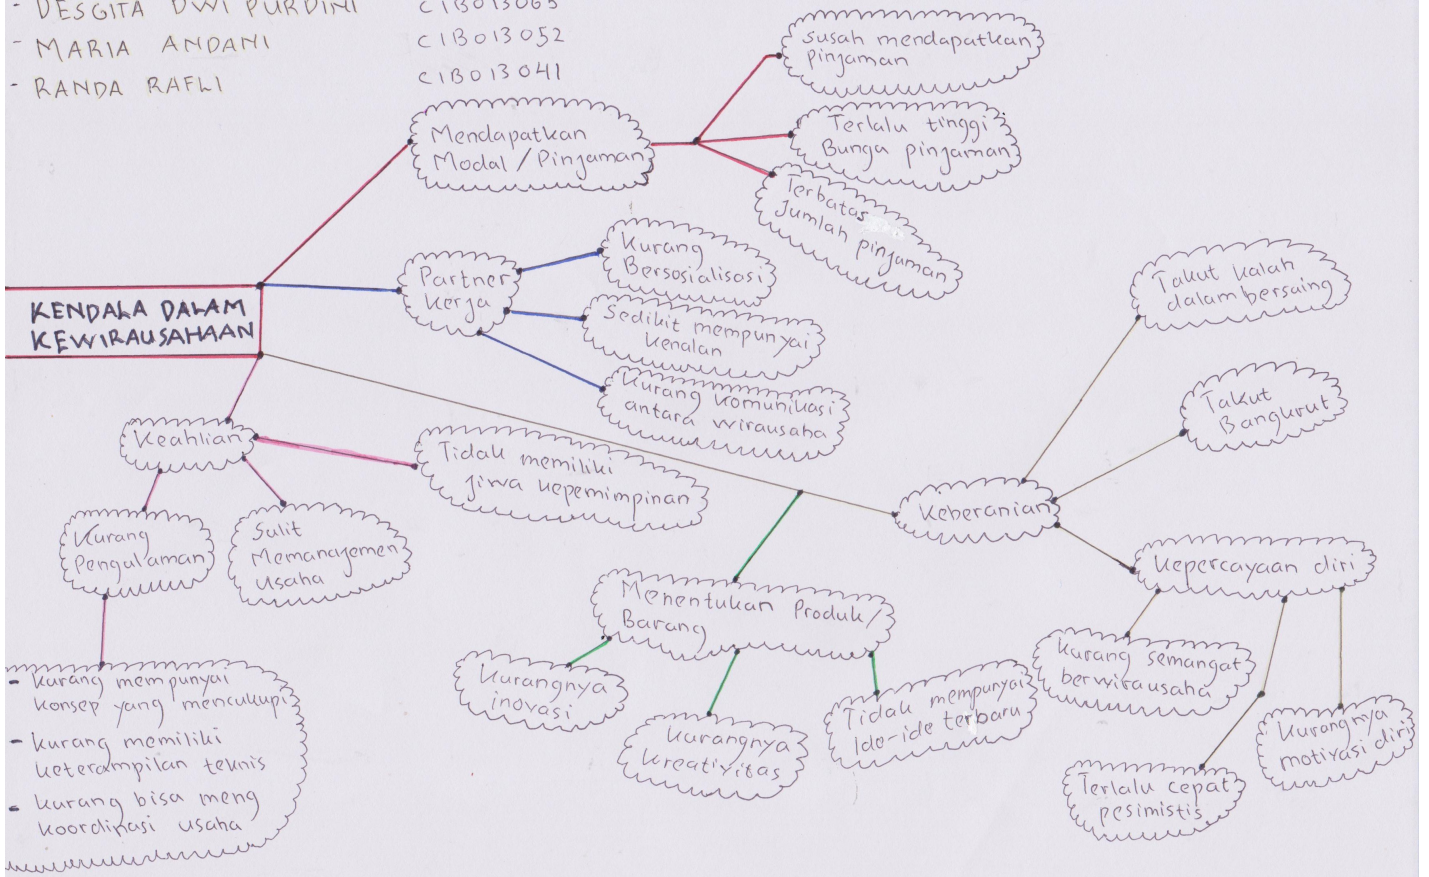 - DESGITA DWI PURDINI C1B013065
- MARIA ANDANI C1B013052
- RANDA RAFLI C1B013041
Mendapatkan
Modal/Pinjaman
susah mendapatkan
pinjaman
Terlalu tinggi
Bunga pinjaman
Terbatas
Jumlah pinjaman
KENDALA DALAM
KEWIRAUSAHAAN
Partner
Kerja
Kurang
Bersosialisasi
Sedikit mempunyai
kenalan
Kurang komunikasi
antara wirausaha
Keahlian
Tidak memiliki
jiwa kepemimpinan
Kurang
Pengalaman
Sulit
Memanajemen
usaha
- kurang mempunyai
konsep yang mencukupi
- kurang memiliki
keterampilan teknis
- kurang bisa meng
koordinasi usaha
Menentukan Produk/
Barang
Kurangnya
inovasi
Kurangnya
kreativitas
Tidak mempunyai
Ide-ide terbaru
Keberanian
Takut kalah
dalam bersaing
Takut
Bangkrut
Kepercayaan diri
Kurang semangat
berwirausaha
Terlalu cepat
pesimistis
Kurangnya
motivasi diri